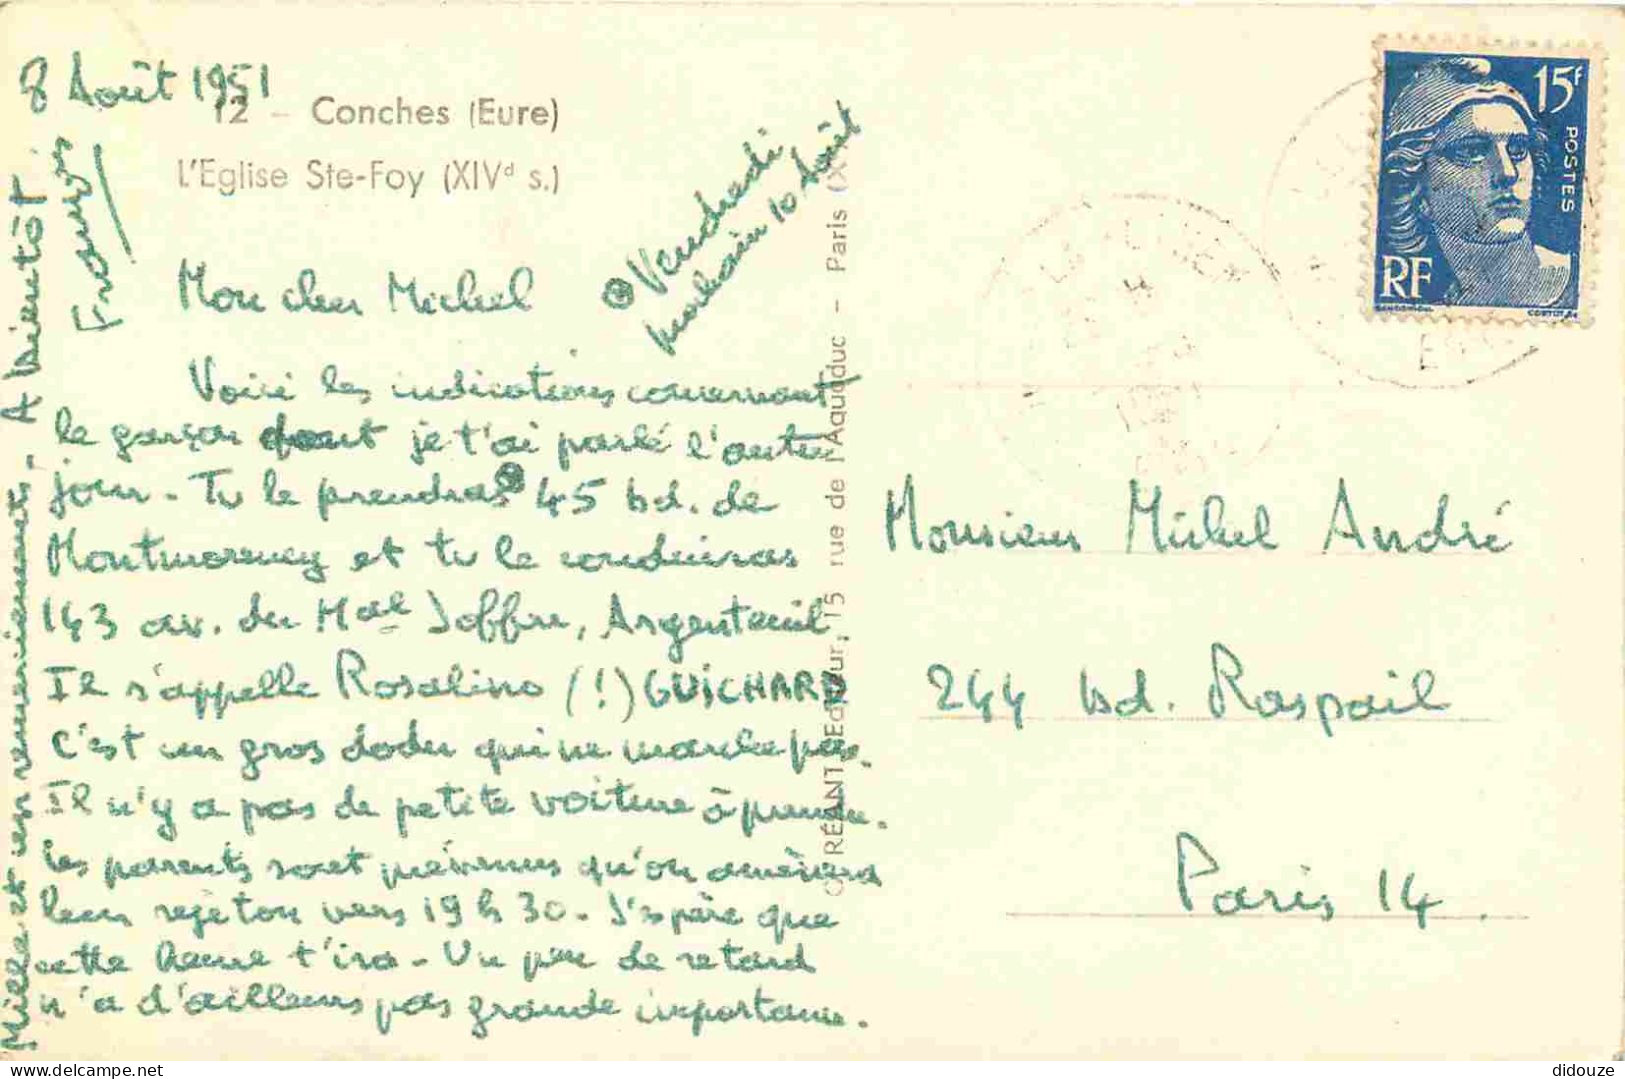 8 Août 1951
12 - Conches (Eure)
L'Eglise Ste-Foy (XIVᵈ s.)
Mon cher Michel
Voici les indications concernant
le garçon dont je t'ai parlé l'autre
jour - Tu le prendras 45 bd. de
Montmorency et tu le conduiras
143 av. du Mal Joffre, Argenteuil
Il s'appelle Rosalino (!) GUICHARD
C'est un gros dodu qui ne marche pas.
Il n'y a pas de petite voiture à prendre.
Les parents sont prévenus qu'on amènera
leur rejeton vers 19 h 30 - J'espère que
cette heure t'ira - Un peu de retard
n'a d'ailleurs pas grande importance.
Mille et un remerciements, A bientôt
François
Vendredi
prochain 10 Août
RÉANT, Editeur, 15 rue de l'Aqueduc - Paris (X
15F
POSTES
RF
Monsieur Michel André
244 bd. Raspail
Paris 14.
didouze